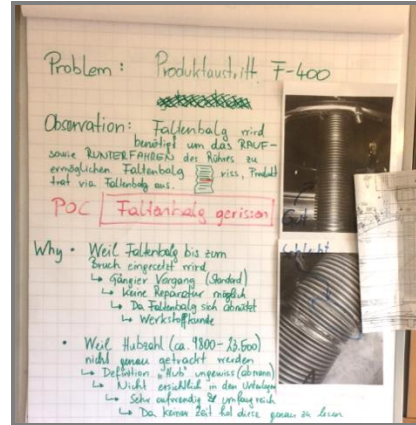 Problem: Produktaustritt F-400
Observation: Faltenbalg wird
benötigt um das RAUF-
sowie RUNTERFAHREN des Rührers zu
ermöglichen Faltenbalg riss, Produkt
trat via Faltenbalg aus.
POC Faltenbalg gerissen
Gut
Schlecht
Why • Weil Faltenbalg bis zum
Bruch eingesetzt wird
↳ Gängier Vorgang (Standard)
↳ Keine Reparatur möglich
↳ Da Faltenbalg sich abnützt
↳ Werkstoffkunde
• Weil Hubzahl (ca. 9800 - 23.500)
nicht genau getrackt werden
↳ Definition "Hub" ungewiss
↳ Nicht ersichtlich in den Unterlagen
↳ Sehr aufwendig & umfangreich
↳ Da keiner Zeit hat diese genau zu lesen